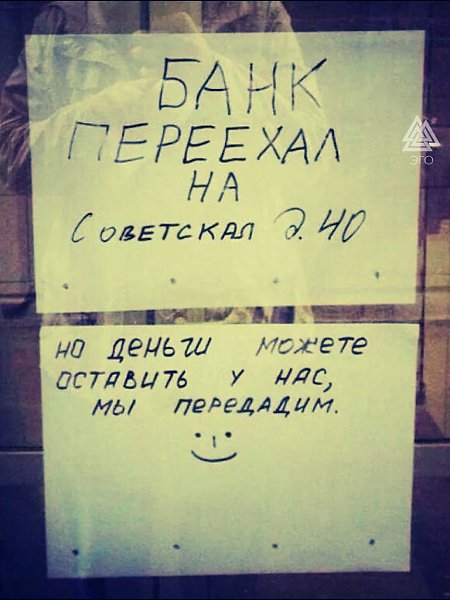 БАНК
ПЕРЕЕХАЛ
НА
СОВЕТСКАЯ Д. 40
НО ДЕНЬГИ МОЖЕТЕ
ОСТАВИТЬ У НАС,
МЫ ПЕРЕДАДИМ.
ЭГО